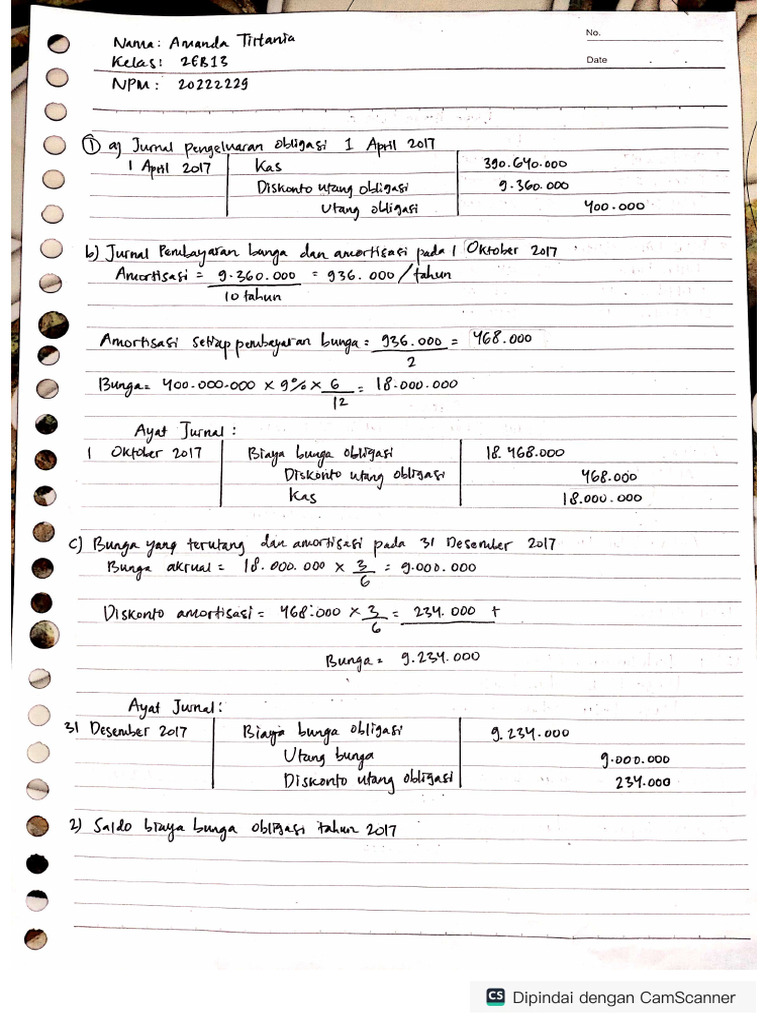 No.
Nama: Amanda Tirtania
Kelas: 2EB13
Date . .
NPM: 20222229
① a) Jurnal pengeluaran obligasi 1 April 2017
1 April 2017 Kas 390.640.000
Diskonto utang obligasi 9.360.000
Utang obligasi 400.000
b) Jurnal Pembayaran bunga dan amortisasi pada 1 Oktober 2017
Amortisasi = 9.360.000 = 936.000/tahun
10 tahun
Amortisasi setiap pembayaran bunga = 936.000 = 468.000
2
Bunga = 400.000.000 × 9% × 6 = 18.000.000
12
Ayat Jurnal :
1 Oktober 2017 Biaya bunga obligasi 18.468.000
Diskonto utang obligasi 468.000
Kas 18.000.000
c) Bunga yang terutang dan amortisasi pada 31 Desember 2017
Bunga akrual = 18.000.000 × 3 = 9.000.000
6
Diskonto amortisasi = 468.000 × 3 = 234.000 +
6
Bunga = 9.234.000
Ayat Jurnal :
31 Desember 2017 Biaya bunga obligasi 9.234.000
Utang bunga 9.000.000
Diskonto utang obligasi 234.000
2) Saldo biaya bunga obligasi tahun 2017
CS Dipindai dengan CamScanner